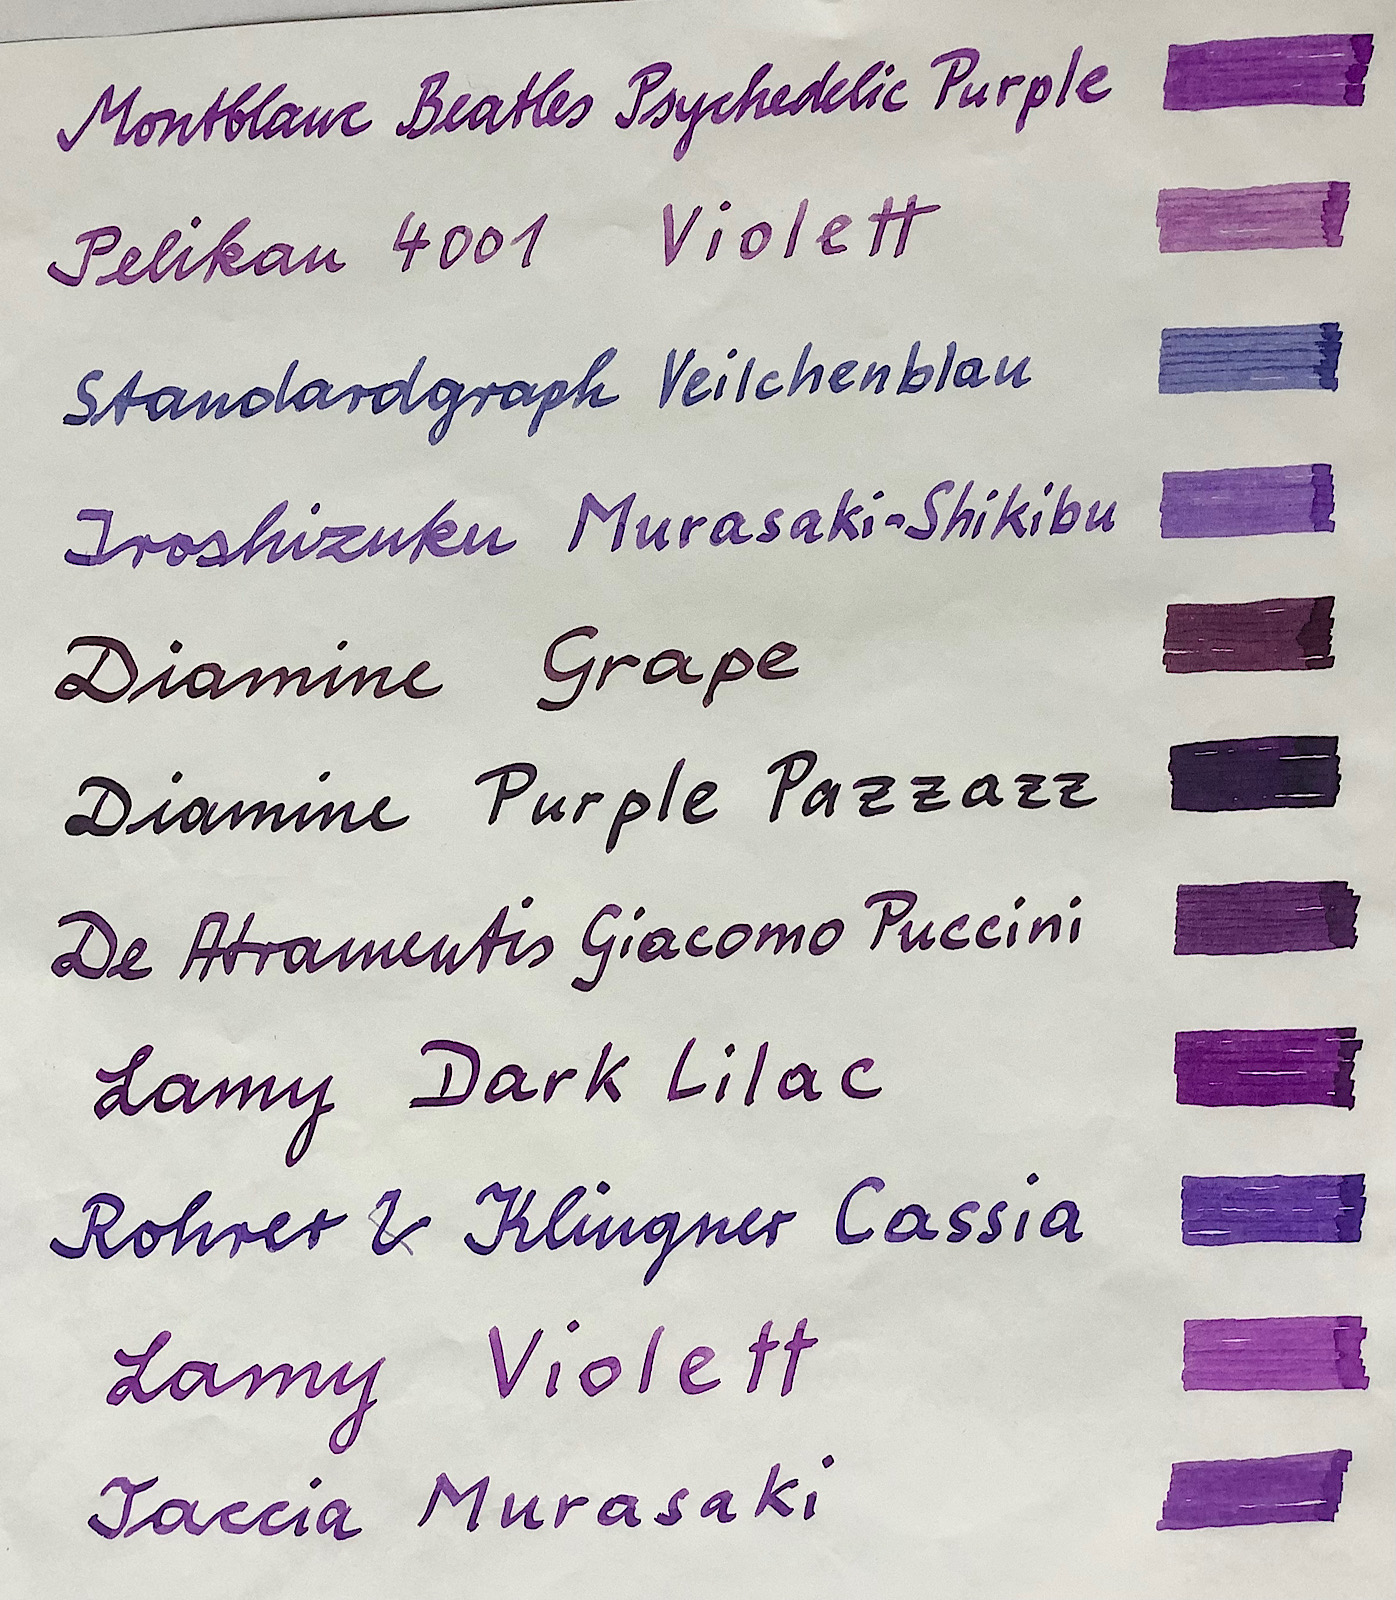 Montblanc Beatles Psychedelic Purple
Pelikan 4001 Violett
Standardgraph Veilchenblau
Iroshizuku Murasaki-Shikibu
Diamine Grape
Diamine Purple Pazzazz
De Atramentis Giacomo Puccini
Lamy Dark Lilac
Rohrer & Klingner Cassia
Lamy Violett
Taccia Murasaki